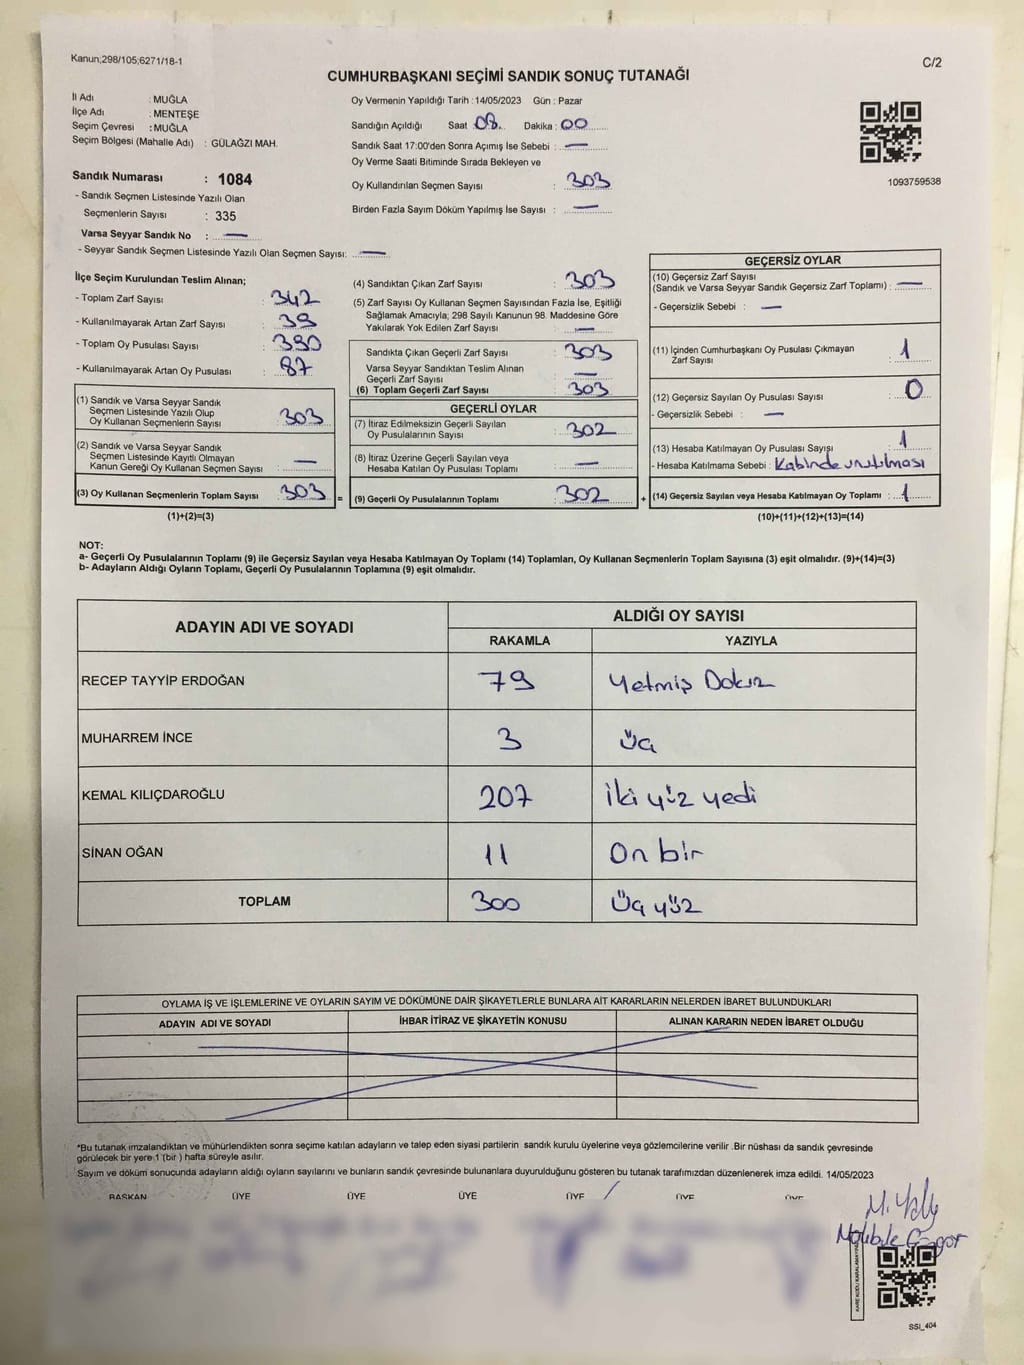 Kanun;298/105;6271/18-1
C/2
CUMHURBAŞKANI SEÇİMİ SANDIK SONUÇ TUTANAĞI
İl Adı : MUĞLA
İlçe Adı : MENTEŞE
Seçim Çevresi : MUĞLA
Seçim Bölgesi (Mahalle Adı) : GÜLAĞZI MAH.
Sandık Numarası : 1084
- Sandık Seçmen Listesinde Yazılı Olan
Seçmenlerin Sayısı : 335
Varsa Seyyar Sandık No : —
- Seyyar Sandık Seçmen Listesinde Yazılı Olan Seçmen Sayısı: —
Oy Vermenin Yapıldığı Tarih : 14/05/2023 Gün : Pazar
Sandığın Açıldığı Saat 08. Dakika : 00
Sandık Saat 17:00'den Sonra Açımış İse Sebebi : —
Oy Verme Saati Bitiminde Sırada Bekleyen ve
Oy Kullandırılan Seçmen Sayısı : 303
Birden Fazla Sayım Döküm Yapılmış İse Sayısı : —
1093759538
İlçe Seçim Kurulundan Teslim Alınan;
- Toplam Zarf Sayısı : 342
- Kullanılmayarak Artan Zarf Sayısı : 39
- Toplam Oy Pusulası Sayısı : 390
- Kullanılmayarak Artan Oy Pusulası : 87
(1) Sandık ve Varsa Seyyar Sandık
Seçmen Listesinde Yazılı Olup
Oy Kullanan Seçmenlerin Sayısı : 303
(2) Sandık ve Varsa Seyyar Sandık
Seçmen Listesinde Kayıtlı Olmayan
Kanun Gereği Oy Kullanan Seçmen Sayısı : —
(3) Oy Kullanan Seçmenlerin Toplam Sayısı : 303 =
(1)+(2)=(3)
(4) Sandıktan Çıkan Zarf Sayısı : 303
(5) Zarf Sayısı Oy Kullanan Seçmen Sayısından Fazla İse, Eşitliği
Sağlamak Amacıyla; 298 Sayılı Kanunun 98. Maddesine Göre
Yakılarak Yok Edilen Zarf Sayısı : —
Sandıkta Çıkan Geçerli Zarf Sayısı : 303
Varsa Seyyar Sandıktan Teslim Alınan
Geçerli Zarf Sayısı : —
(6) Toplam Geçerli Zarf Sayısı : 303
GEÇERLİ OYLAR
(7) İtiraz Edilmeksizin Geçerli Sayılan
Oy Pusulalarının Sayısı : 302
(8) İtiraz Üzerine Geçerli Sayılan veya
Hesaba Katılan Oy Pusulası Toplamı : —
(9) Geçerli Oy Pusulalarının Toplamı : 302 +
GEÇERSİZ OYLAR
(10) Geçersiz Zarf Sayısı
(Sandık ve Varsa Seyyar Sandık Geçersiz Zarf Toplamı) : —
- Geçersizlik Sebebi : —
(11) İçinden Cumhurbaşkanı Oy Pusulası Çıkmayan
Zarf Sayısı : 1
(12) Geçersiz Sayılan Oy Pusulası Sayısı : 0
- Geçersizlik Sebebi : —
(13) Hesaba Katılmayan Oy Pusulası Sayısı : 1
- Hesaba Katılmama Sebebi : Kabinde unutulması
(14) Geçersiz Sayılan veya Hesaba Katılmayan Oy Toplamı : 1
(10)+(11)+(12)+(13)=(14)
NOT:
a- Geçerli Oy Pusulalarının Toplamı (9) ile Geçersiz Sayılan veya Hesaba Katılmayan Oy Toplamı (14) Toplamları, Oy Kullanan Seçmenlerin Toplam Sayısına (3) eşit olmalıdır. (9)+(14)=(3)
b- Adayların Aldığı Oyların Toplamı, Geçerli Oy Pusulalarının Toplamına (9) eşit olmalıdır.
ADAYIN ADI VE SOYADI
ALDIĞI OY SAYISI
RAKAMLA YAZIYLA
RECEP TAYYİP ERDOĞAN 79 Yetmiş Dokuz
MUHARREM İNCE 3 Üç
KEMAL KILIÇDAROĞLU 207 İki yüz yedi
SİNAN OĞAN 11 On bir
TOPLAM 300 Üç yüz
OYLAMA İŞ VE İŞLEMLERİNE VE OYLARIN SAYIM VE DÖKÜMÜNE DAİR ŞİKAYETLERLE BUNLARA AİT KARARLARIN NELERDEN İBARET BULUNDUKLARI
ADAYIN ADI VE SOYADI İHBAR İTİRAZ VE ŞİKAYETİN KONUSU ALINAN KARARIN NEDEN İBARET OLDUĞU
*Bu tutanak imzalandıktan ve mühürlendikten sonra seçime katılan adayların ve talep eden siyasi partilerin sandık kurulu üyelerine veya gözlemcilerine verilir .Bir nüshası da sandık çevresinde
görülecek bir yere 1 (bir ) hafta süreyle asılır.
Sayım ve döküm sonucunda adayların aldığı oyların sayılarını ve bunların sandık çevresinde bulunanlara duyurulduğunu gösteren bu tutanak tarafımızdan düzenlenerek imza edildi. 14/05/2023
BAŞKAN ÜYE ÜYE ÜYE ÜYE ÜYE ÜYE
SSI_404